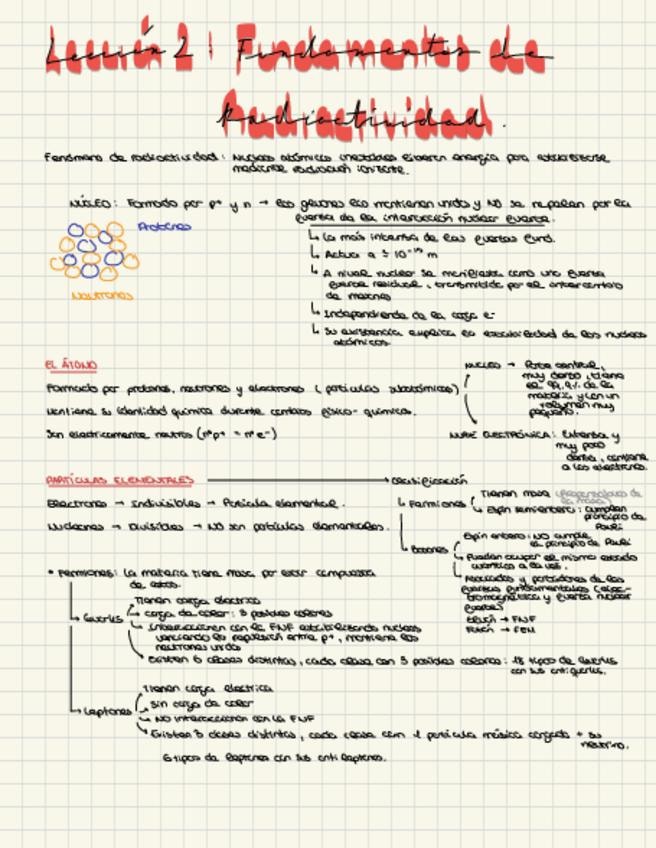 Lección 2: Fundamentos de
Radiactividad.
Fenómeno de radioactividad: Núcleos atómicos inestables liberan energía para estabilizarse
mediante radiación ionizante.
NÚCLEO: Formado por p+ y n → los gluones los mantienen unidos y NO se repelen por la
fuerza de la interacción nuclear fuerte.
Protones
Neutrones
↳ La más intensa de las fuerzas fund.
↳ Actúa a ≤ 10⁻¹⁵ m
↳ A nivel nuclear se manifiesta como una fuerza
fuerza residual, transmitida por el intercambio
de mesones
↳ Independiente de la carga e-
↳ Su existencia explica la estabilidad de los núcleos
atómicos.
EL ÁTOMO
Formado por protones, neutrones y electrones (partículas subatómicas)
Mantiene su identidad química durante cambios físico-químicos.
Son eléctricamente neutros (nºp+ = nºe-)
NÚCLEO → Parte central,
muy denso, tiene
el 99,9% de la
materia y con un
volumen muy
pequeño.
NUBE ELECTRÓNICA: Extensa y
muy poco
densa, contiene
a los electrones.
PARTÍCULAS ELEMENTALES → Clasificación
Electrones → Indivisibles → Partícula elemental.
Nucleones → Divisibles → NO son partículas elementales.
↳ Fermiones
Tienen masa
↳ Espín semientero: cumplen
principio de
Pauli
↳ Bosones
Espín entero: NO cumple
el principio de Pauli
↳ Pueden ocupar el mismo estado
cuántico a la vez.
↳ Asociados y portadores de las
fuerzas fundamentales (elec-
tromagnética y fuerza nuclear
fuerte)
Gluón → FNF
Fotón → FEM
• Fermiones: La materia tiene masa por estar compuesta
de estos.
↳ Quarks
Tienen carga eléctrica
↳ carga de color: 3 posibles colores
↳ Interaccionan con la FNF estabilizando núcleos
venciendo la repulsión entre p+, mantiene los
neutrones unidos
↳ Existen 6 clases distintas, cada clase con 3 posibles colores: 18 tipos de quarks
con sus antiquarks.
↳ Leptones
Tienen carga eléctrica
↳ Sin carga de color
↳ NO interaccionan con la FNF
↳ Existen 3 clases distintas, cada clase con 1 partícula másica cargada + su
neutrino.
6 tipos de leptones con sus antileptones.